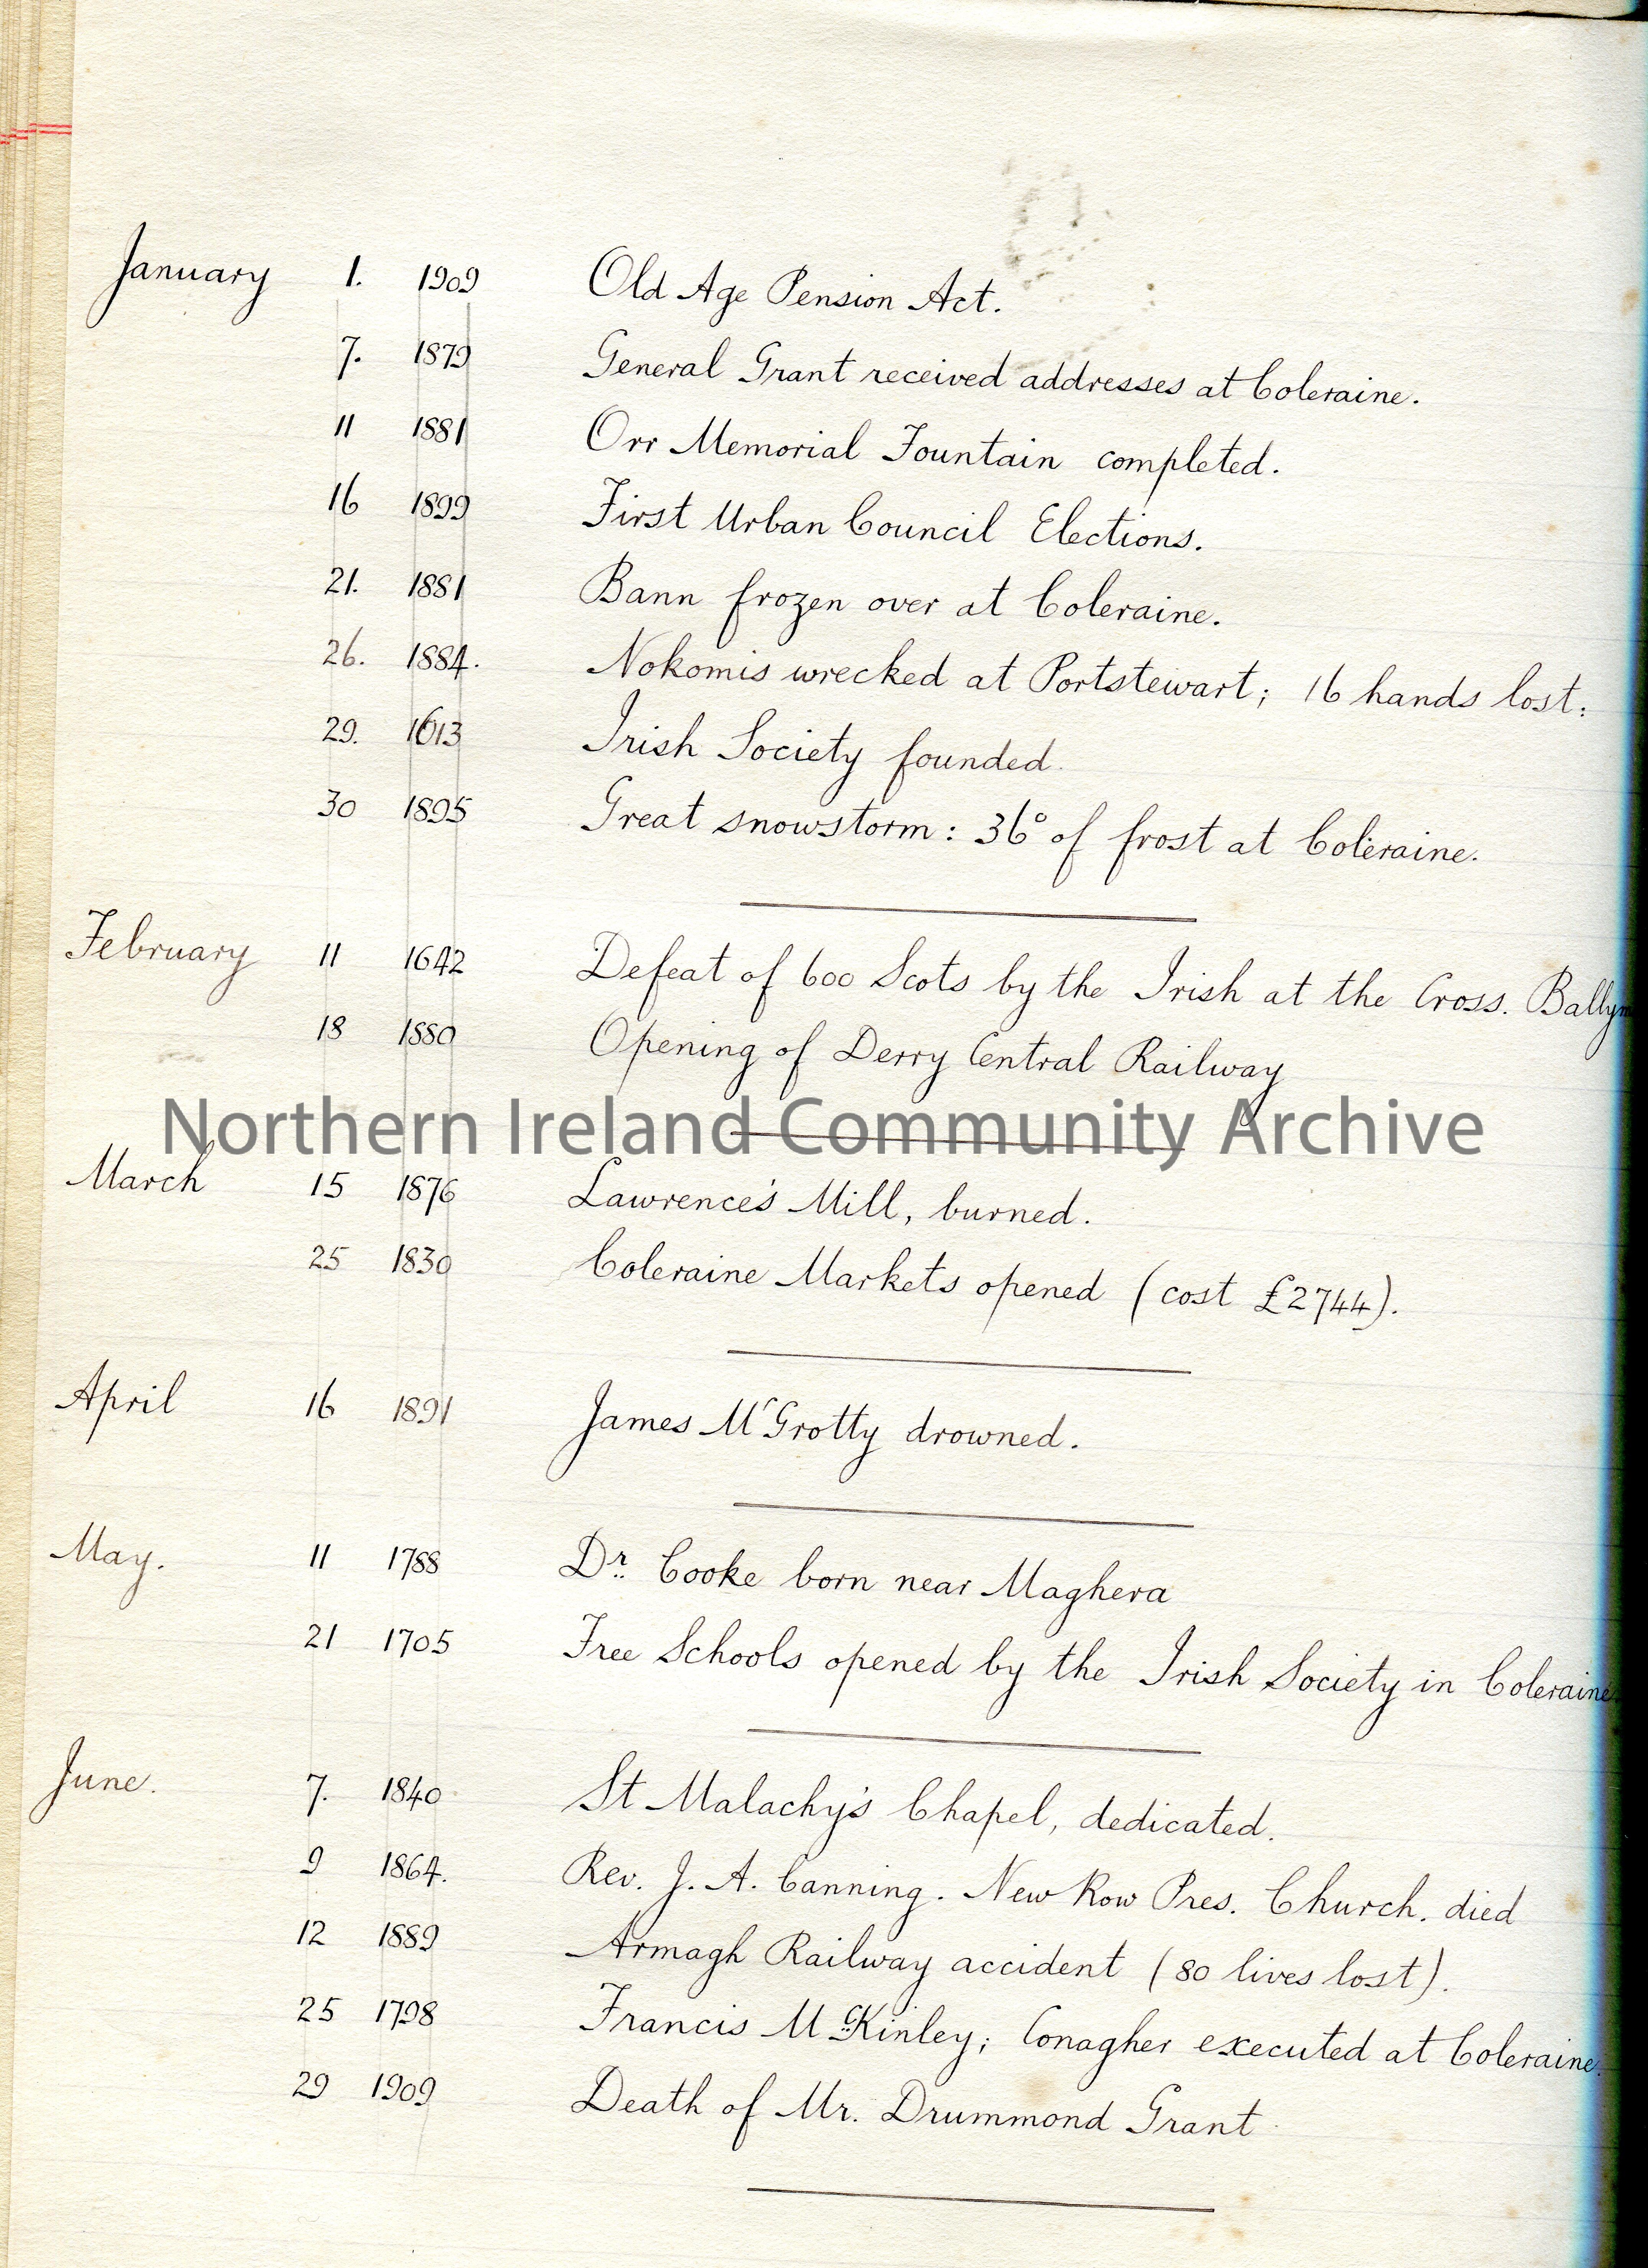 January 1. 1909 Old Age Pension Act.
7. 1879 General Grant received addresses at Coleraine.
11 1881 Orr Memorial Fountain completed.
16 1899 First Urban Council Elections.
21. 1881 Bann frozen over at Coleraine.
26. 1884. Nokomis wrecked at Portstewart; 16 hands lost:
29. 1613 Irish Society founded.
30 1895 Great snowstorm: 36° of frost at Coleraine.
February 11 1642 Defeat of 600 Scots by the Irish at the Cross.
18 1880 Opening of Derry Central Railway
Northern Ireland Community Archive
March 15 1876 Lawrence's Mill, burned.
25 1830 Coleraine Markets opened (cost £2744).
April 16 1891 James McGrotty drowned.
May. 11 1788 Dr. Cooke born near Maghera
21 1705 Free Schools opened by the Irish Society in Coleraine
June. 7. 1840 St Malachy's Chapel, dedicated.
9 1864. Rev. J. A. Canning. New Row Pres. Church. died
12 1889 Armagh Railway accident (80 lives lost).
25 1798 Francis McKinley; Conagher executed at Coleraine.
29 1909 Death of Mr. Drummond Grant